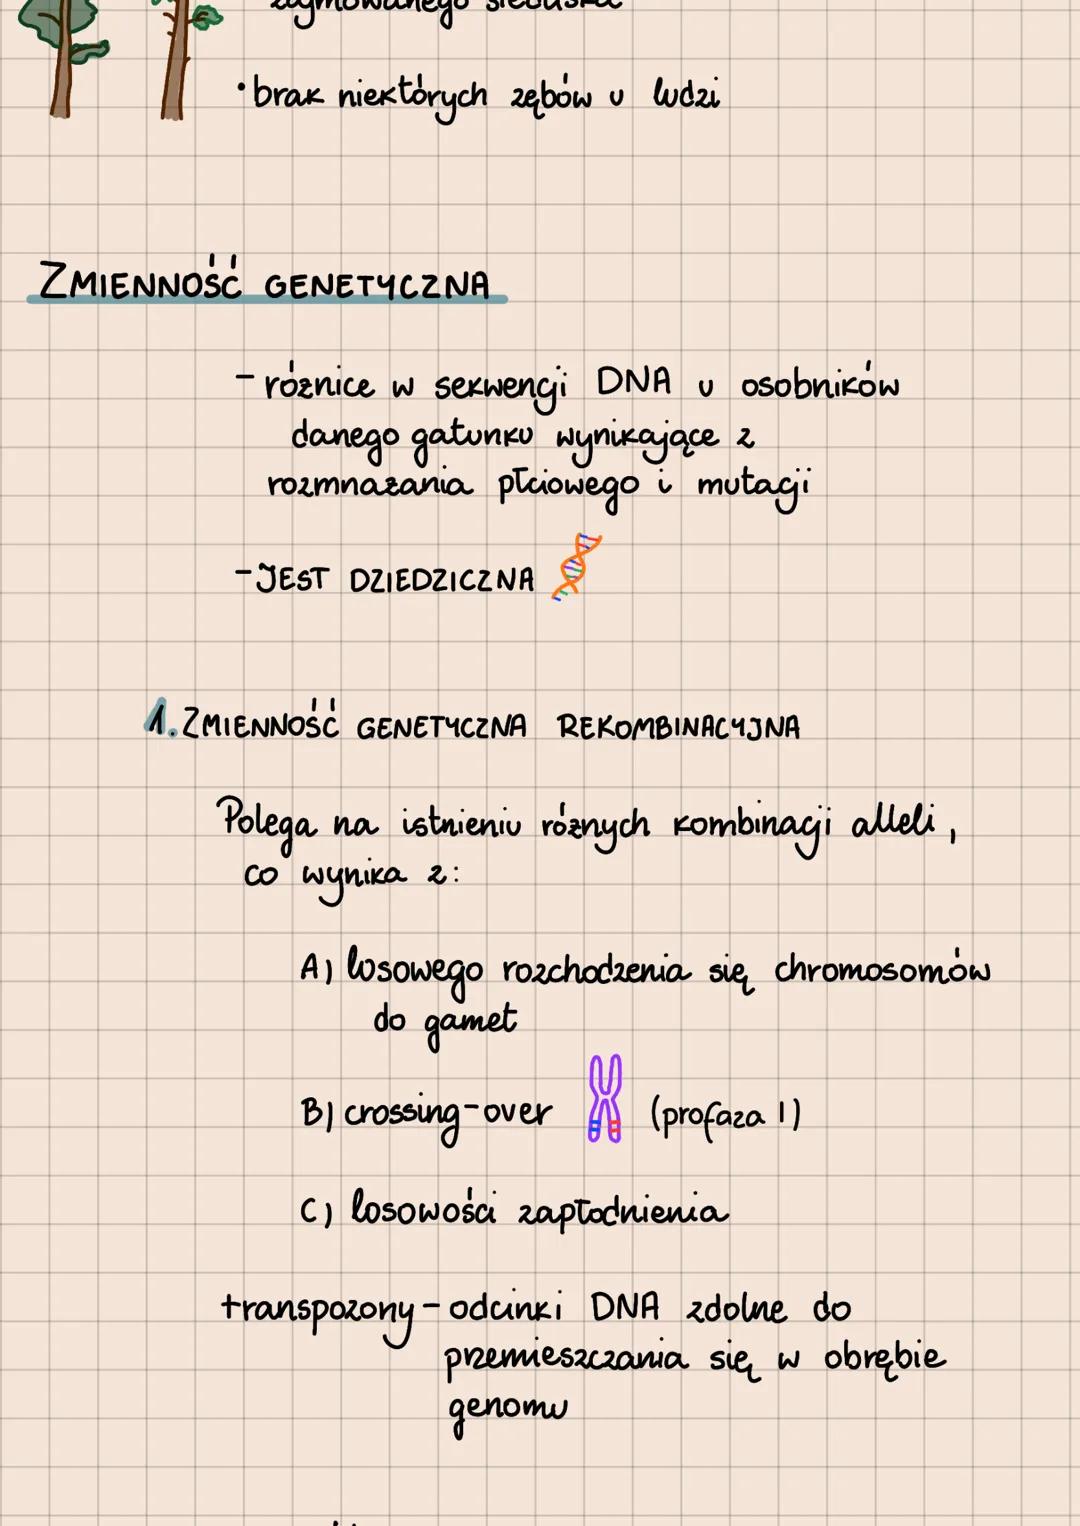 zajmowanego siedliska
• brak niektórych zębów u ludzi
ZMIENNOŚĆ GENETYCZNA
- różnice w sekwencji DNA u osobników
danego gatunku wynikające z
rozmnażania płciowego i mutacji
- JEST DZIEDZICZNA
1. ZMIENNOŚĆ GENETYCZNA REKOMBINACYJNA
Polega na istnieniu różnych kombinacji alleli,
co wynika z:
A) losowego rozchodzenia się chromosomów
do gamet
B) crossing-over (profaza I)
C) losowości zapłodnienia
transpozony - odcinki DNA zdolne do
przemieszczania się w obrębie
genomu